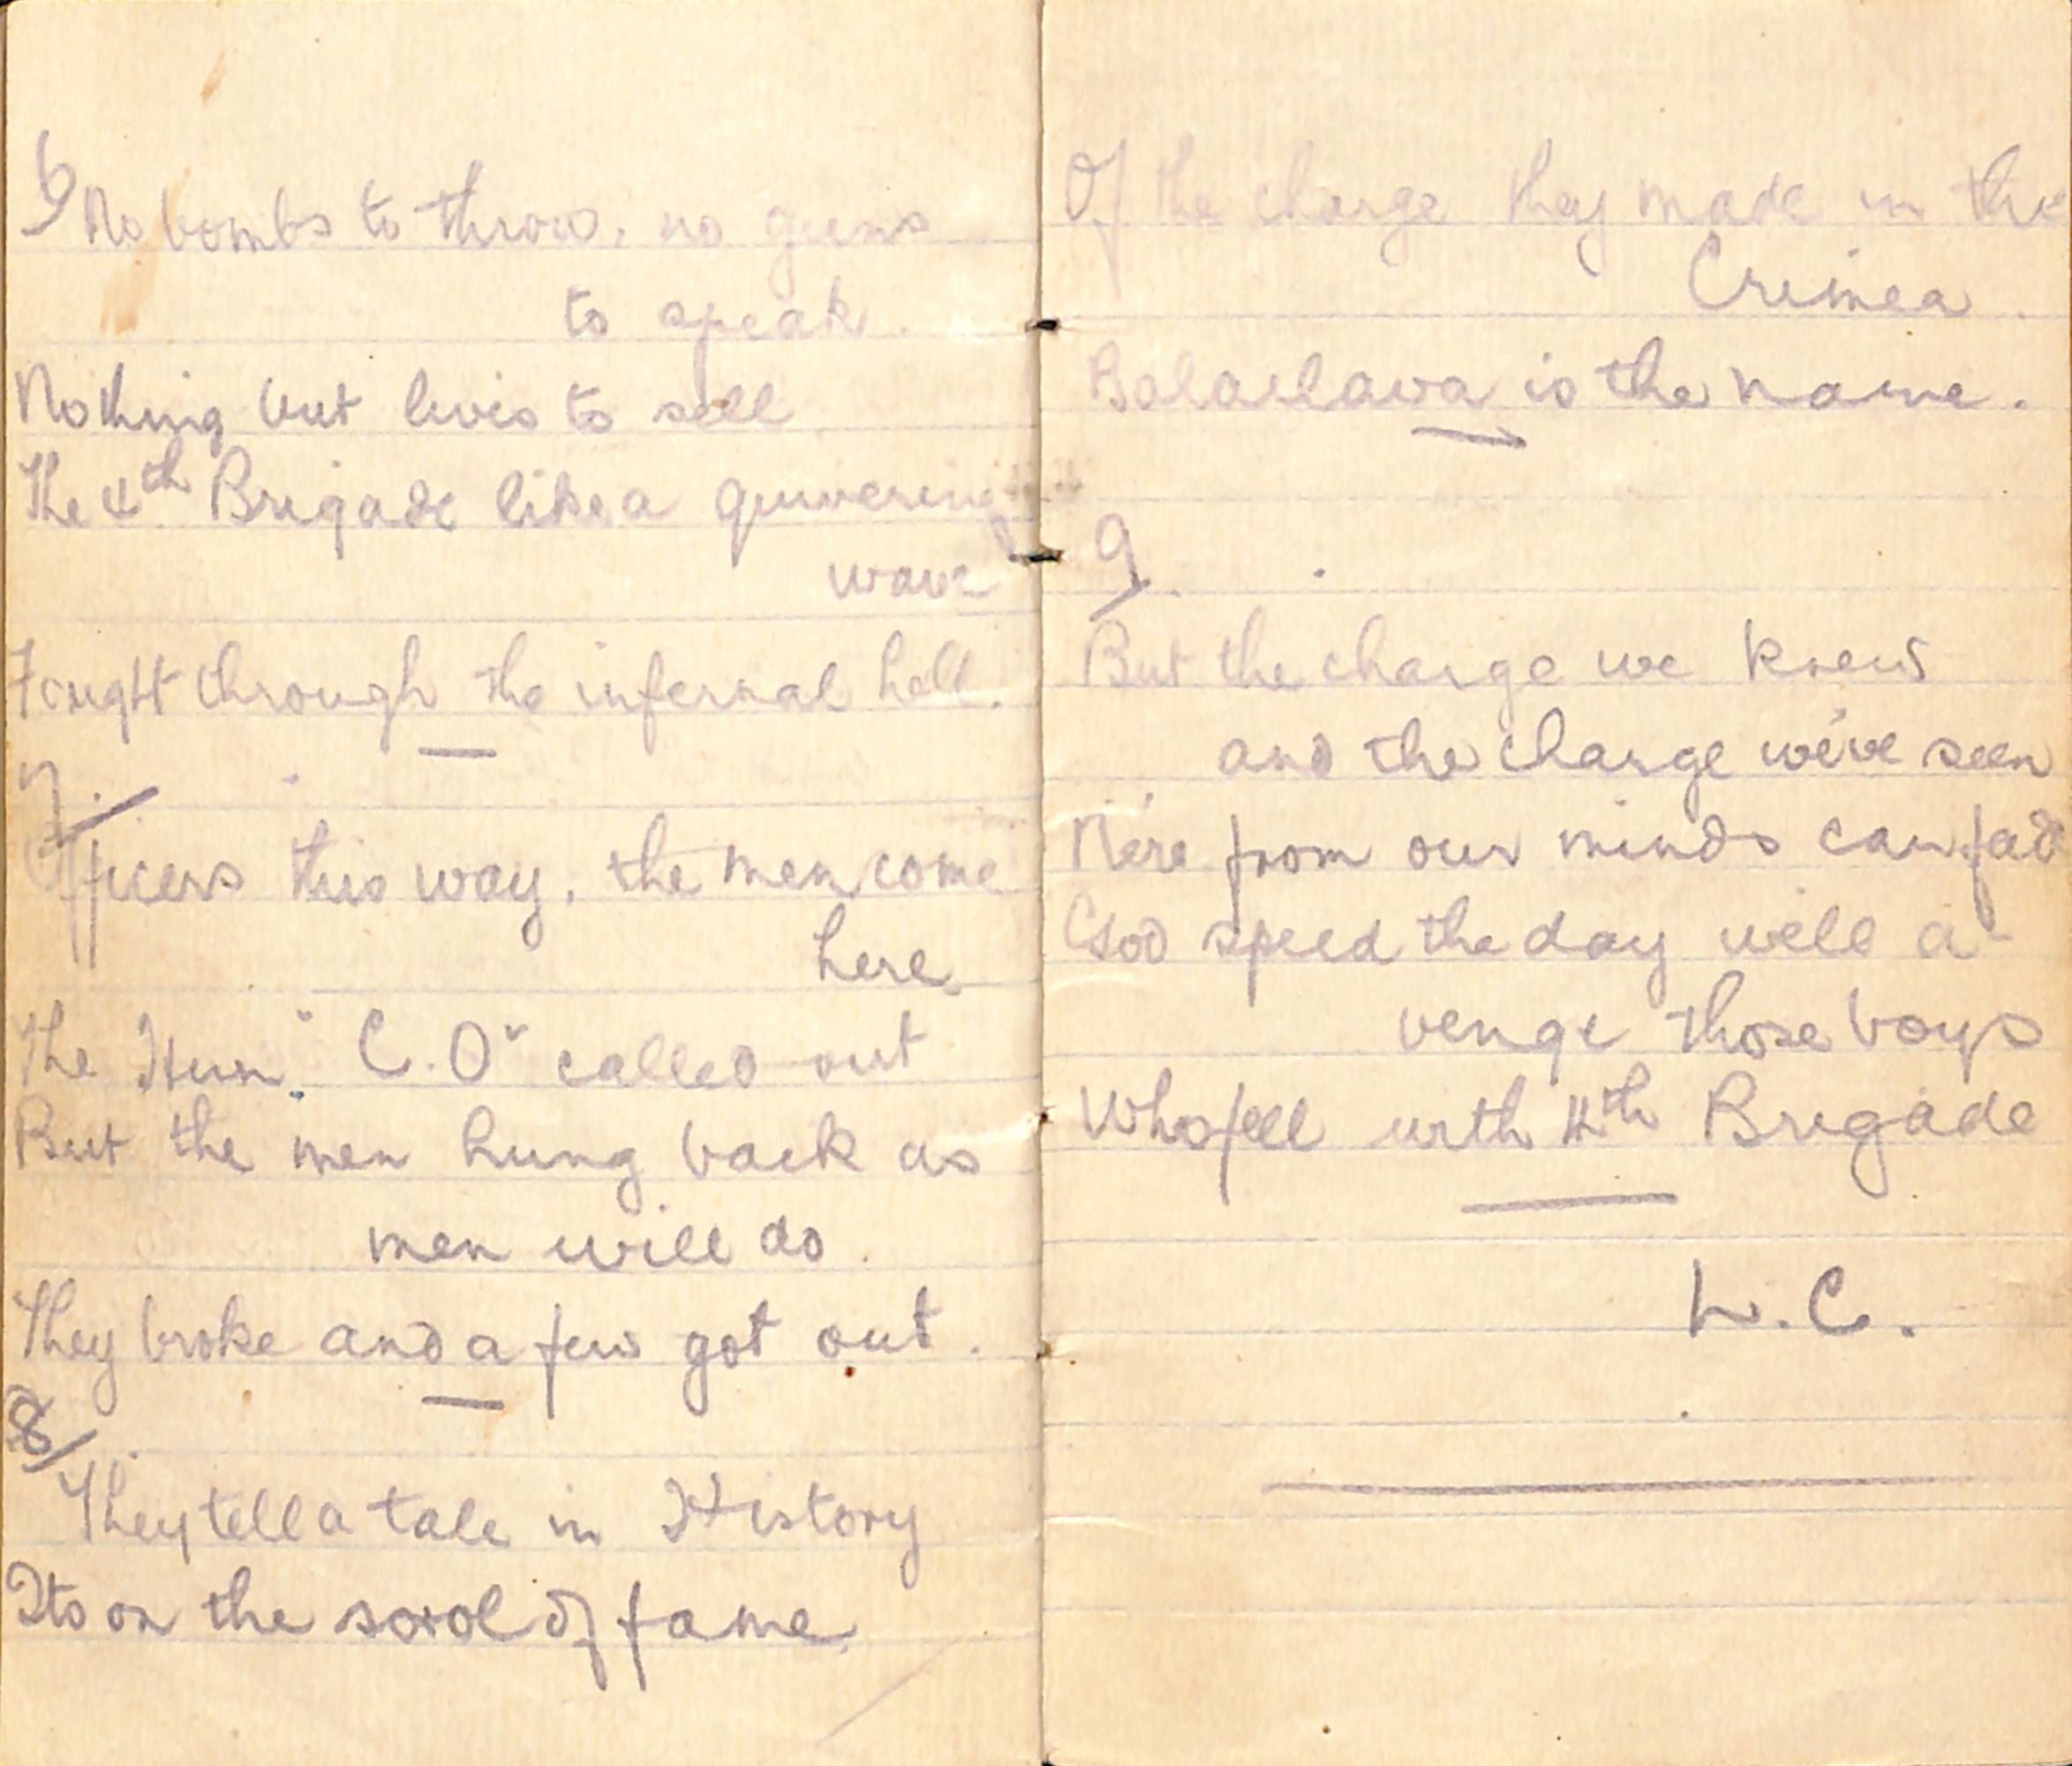 6/
No bombs to throw, no guns
to speak.
Nothing but lives to sell
The 4th Brigade like a quivering
wave
Fought through the infernal hell.
7/.
Officers this way, the men come
here.
The Hun "C.O" called out
But the men hung back as
men will do.
They broke and a few got out.
8/.
They tell a tale in History
Its on the scrol of fame
Of the charge they made in the
Crimea.
Balaclava is the name.
9/.
But the charge we knew
and the charge we've seen
Ne're from our minds can fade
God speed the day well a-
venge those boys
Who fell with 4th Brigade
L.C.